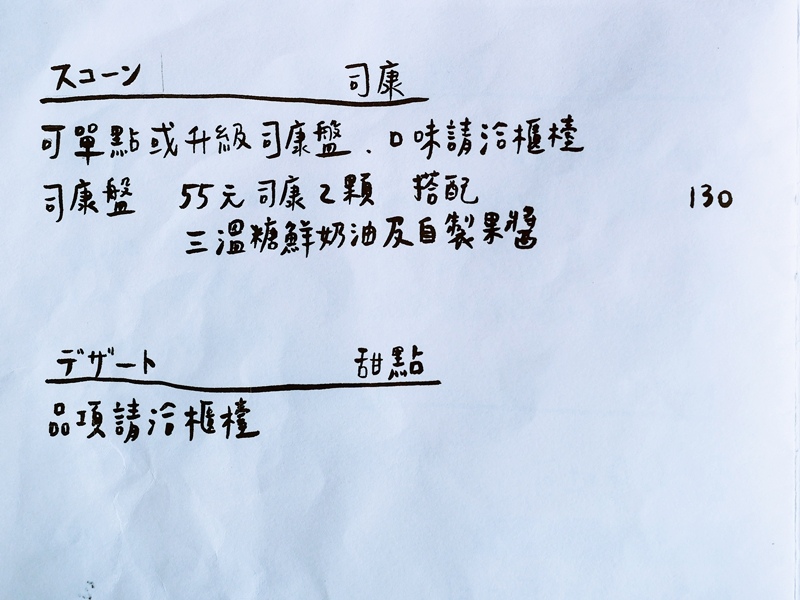 スコーン 司康
可單點或升級司康盤、口味請洽櫃檯
司康盤 55元司康2顆 搭配 130
三溫糖鮮奶油及自製果醬
デザート 甜點
品項請洽櫃檯